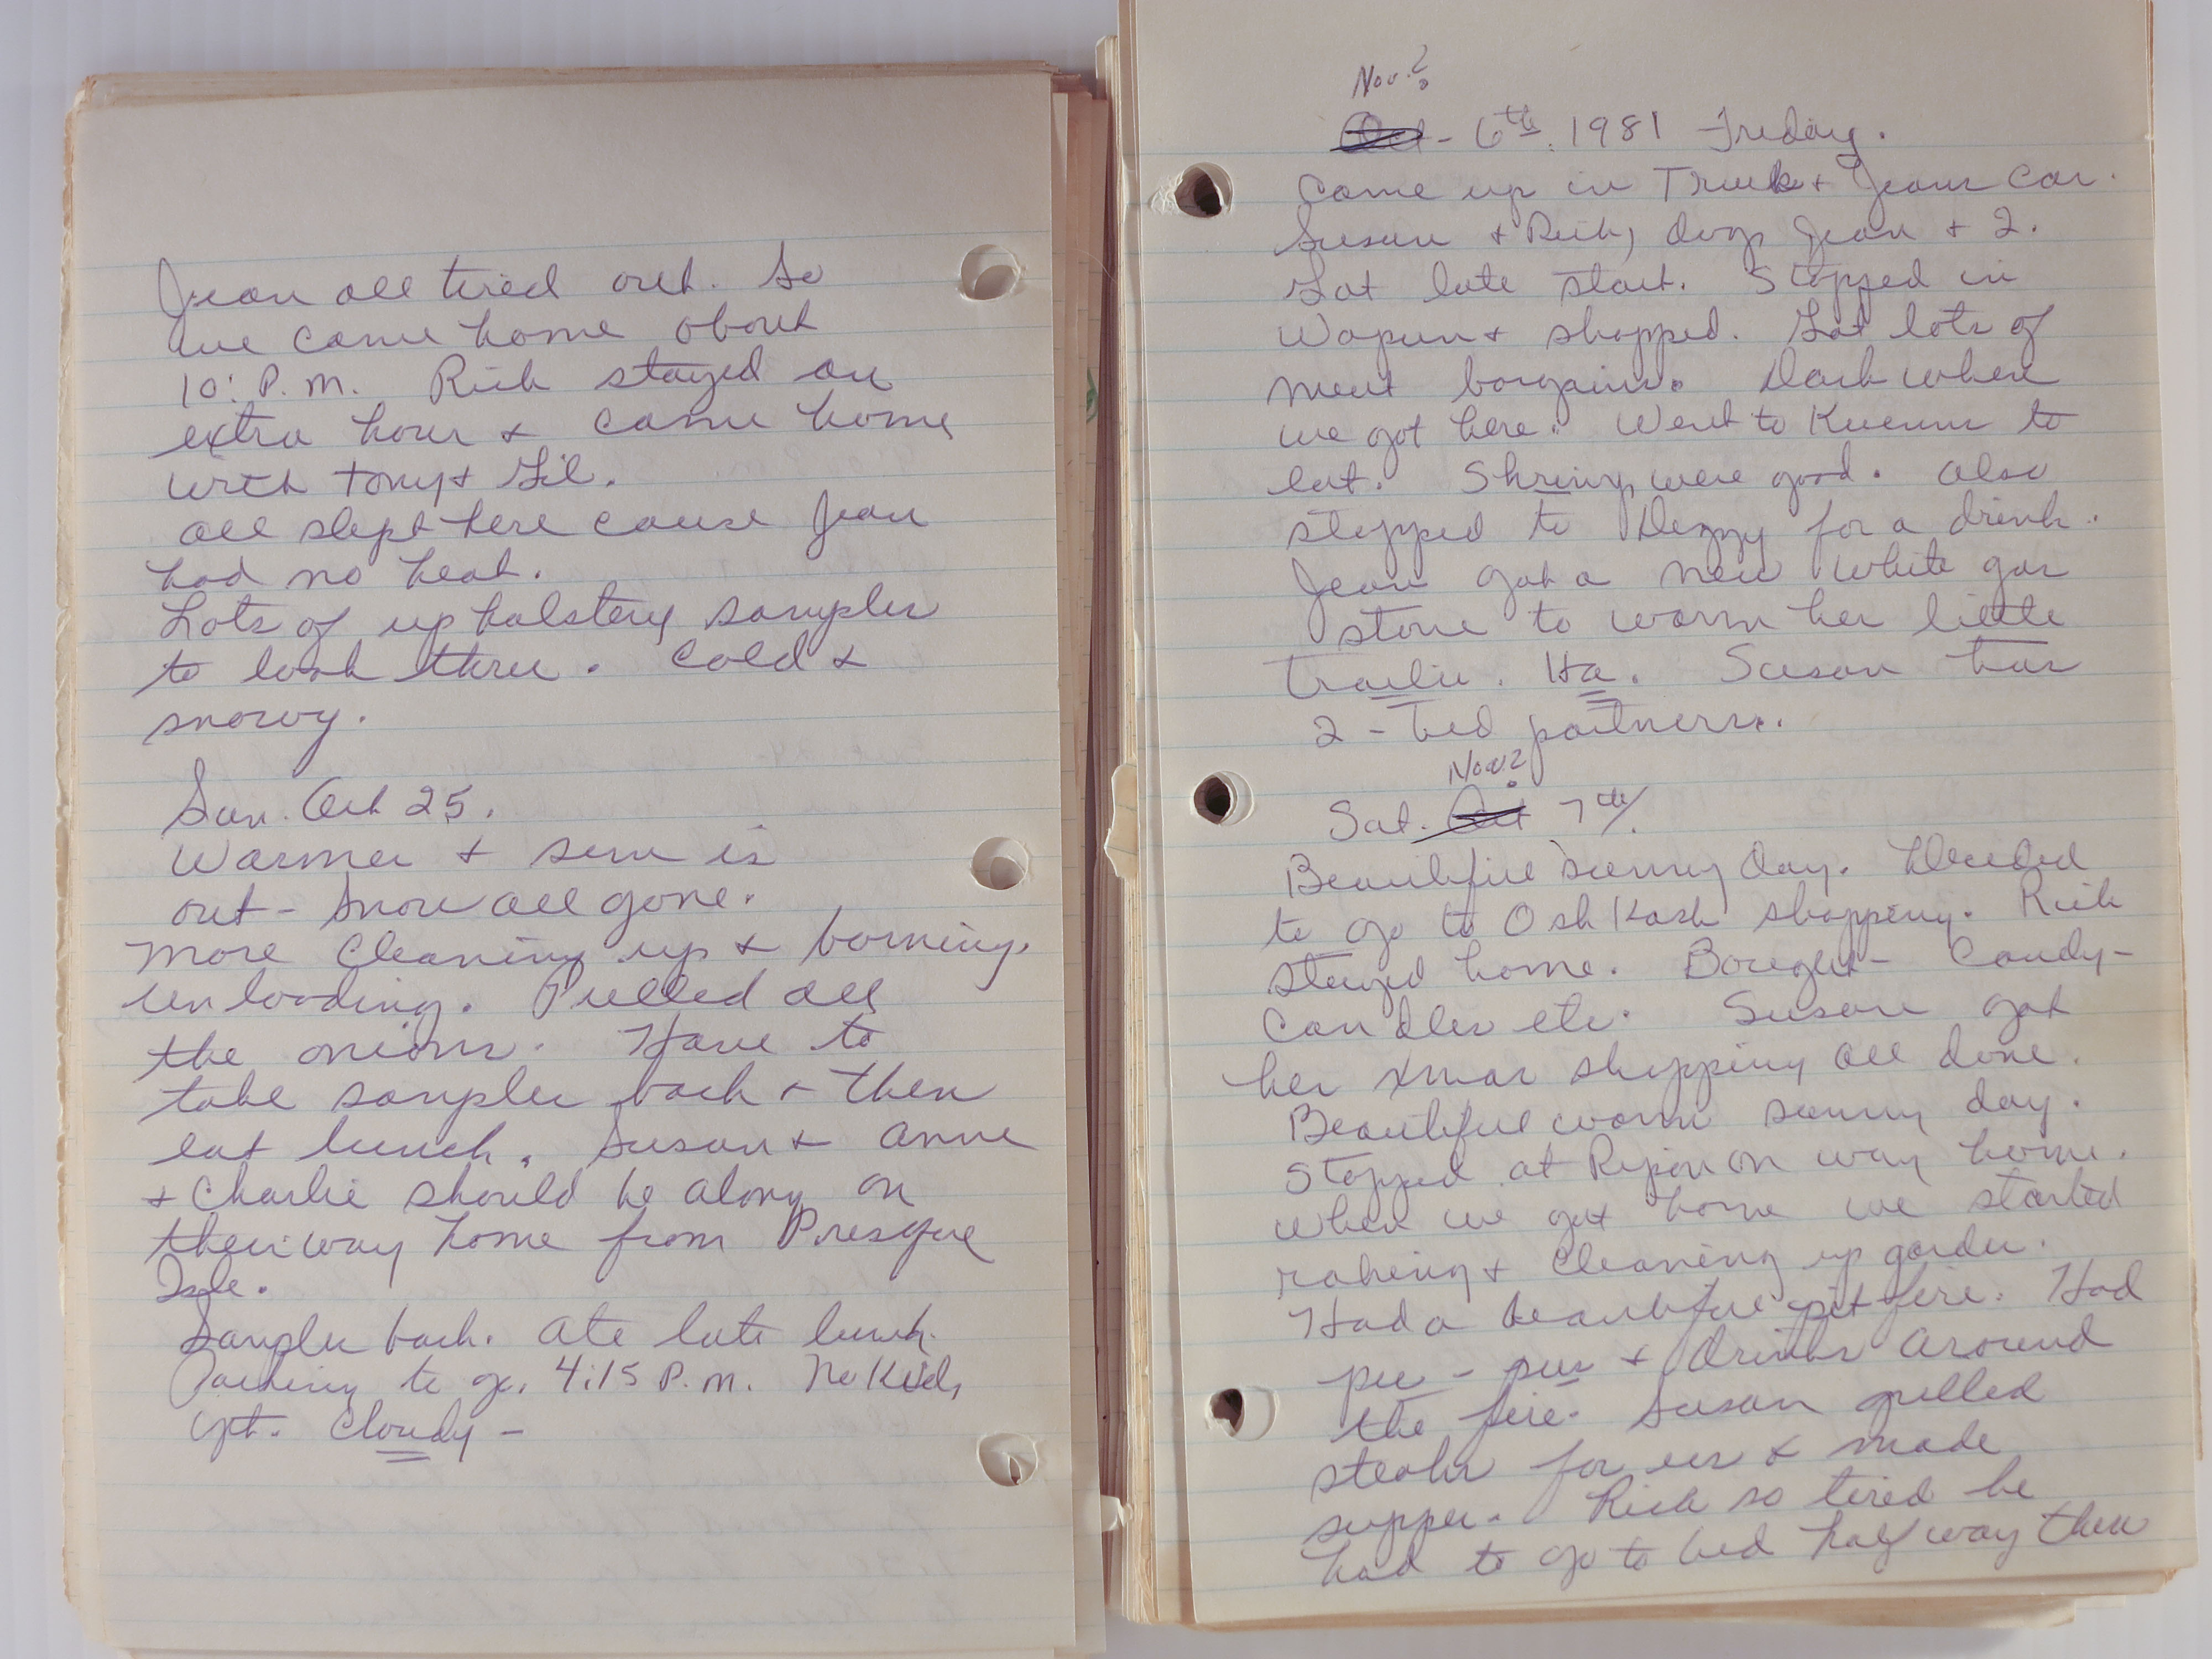 Jean all tired out. So
we came home about
10: P.M. Rich stayed an
extra hour & came home
with Tony & Gil.
all slept here cause Jean
had no heat.
Lots of upholstery samples
to look thru. Cold &
snowy.
Sun. Oct 25.
Warmer & sun is
out - Snow all gone.
More Cleaning up & burning,
unloading. Pulled all
the onions. Have to
take samples back & then
eat lunch. Susan & Anne
& Charlie should be along on
their way home from Presque
Isle.
Samples back. Ate late lunch.
Packing to go. 4:15 P.M. No Kids,
yet. Cloudy -
Nov.?
Oct - 6th. 1981 Friday.
Came up in Truck & Jeans Car.
Susan & Rich, dogs Jean & I.
Got late start. Stopped in
Waupun & shopped. Got lots of
meat bargains. Dark when
we got here. Went to to
eat. Shrimp were good. Also
stopped to for a drink.
Jean got a new white gas
stove to warm her little
trailer. Ha. Susan has
2 - bed partners.
Nov?
Sat. Oct 7th.
Beautiful sunny day. Decided
to go to OshKosh shopping. Rich
stayed home. Bought - Candy -
Candles etc. Susan got
her Xmas shopping all done.
Beautiful warm sunny day.
Stopped at Ripon on way home.
When we got home we started
raking & Cleaning up garden.
Had a beautiful pit fire. Had
pu - pus & drinks around
the fire. Susan grilled
steaks for us & made
supper. Rich so tired he
had to go to bed half way thru